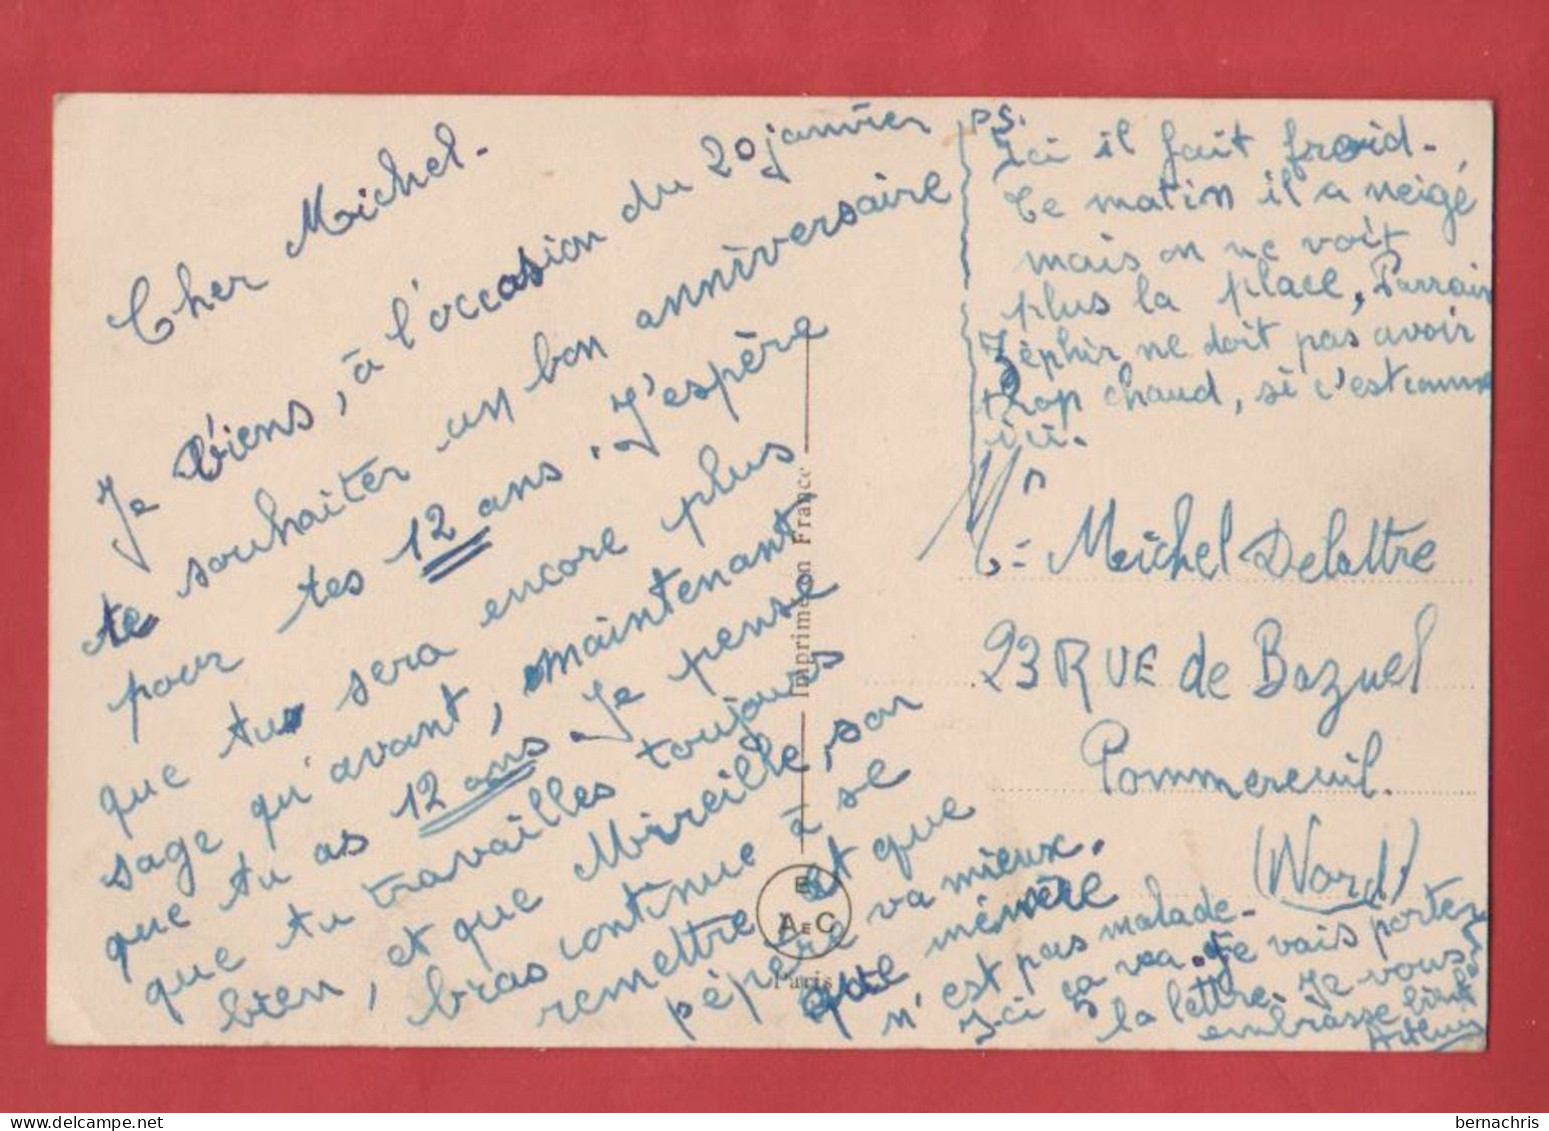 Cher Michel.
Je viens, à l'occasion du 20 janvier
te souhaiter un bon anniversaire
pour tes 12 ans. J'espère
que tu sera encore plus
sage qu'avant, maintenant
que tu as 12 ans. Je pense
que tu travailles toujours
bien, et que Mireille, son
bras continue à se
remettre et que
pépère va mieux.
que mémère
n'est pas malade.
Ici ça va. Je vais porter
la lettre. Je vous
embrasse
PS.
Ici il fait froid.
Ce matin il a neigé
mais on ne voit
plus la place, Parrain
Zéphir ne doit pas avoir
trop chaud, si c'est comme
ici.
Mr Michel Delattre
23 RUE de Bazuel
Pommereuil.
(Nord)
Imprimé en France
E
A E C
Paris
bernachris